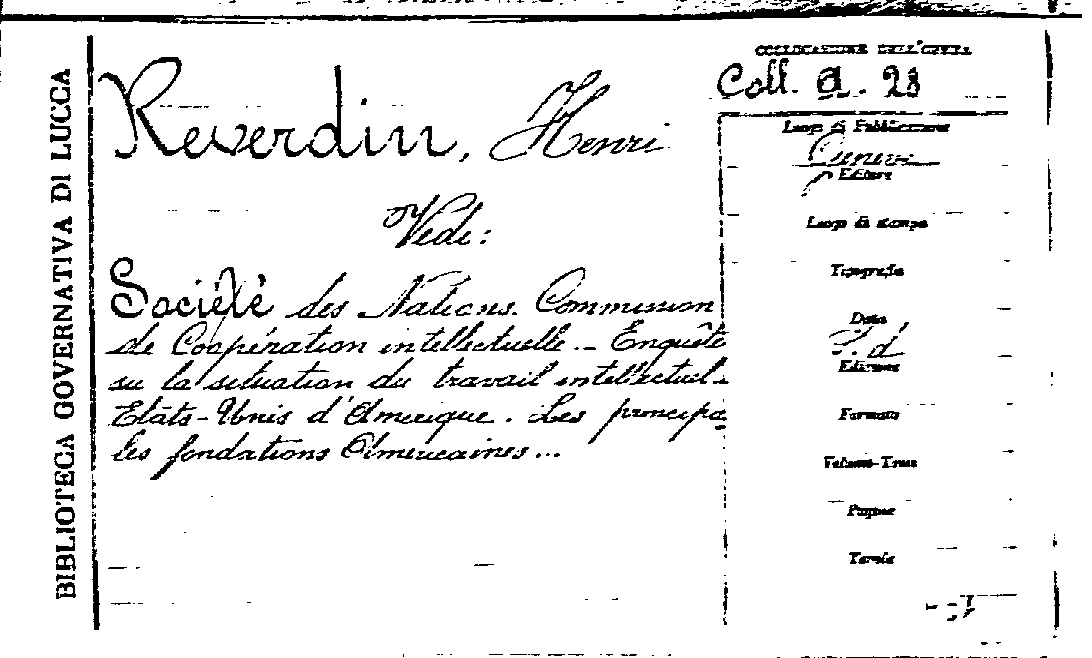 BIBLIOTECA GOVERNATIVA DI LUCCA
Reverdin, Henri
Vede:
Société des Nations. Commission
de Coopération intellectuelle. - Enquête
su la situation du travail intellectuel.
Etats-Unis d'Amerique. Les principa
les fondations Americaines...
COLLOCAZIONE DELL'OPERA
Coll. A. 28
Luogo di Pubblicazione
Editore
Luogo di stampa
Tipografia
Data
S. d.
Edizione
Formato
Volumi-Tomi
Pagine
Tavole